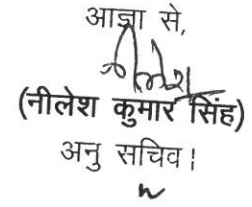 आज्ञा से,
(नीलेश कुमार सिंह)
अनु सचिव।